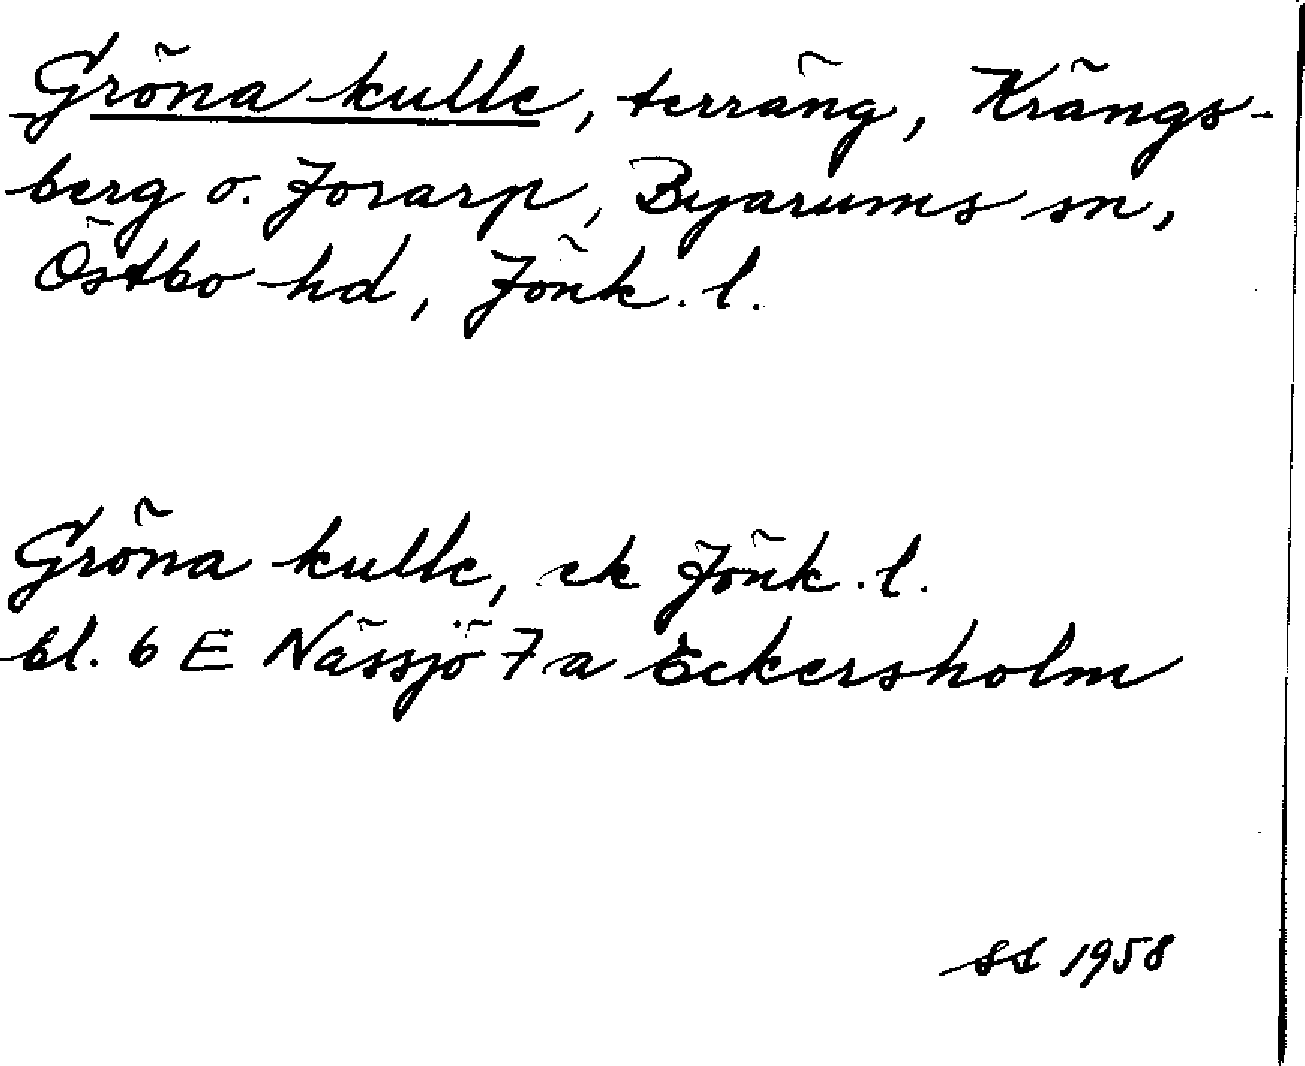 Gröna kulle, terräng, Krängs-
berg o. Jorarp, Byarums sn,
Östbo hd, Jönk. l.
Gröna kulle, ek Jönk. l.
bl. 6 E Nässjö 7 a Eckersholm
SS 1958